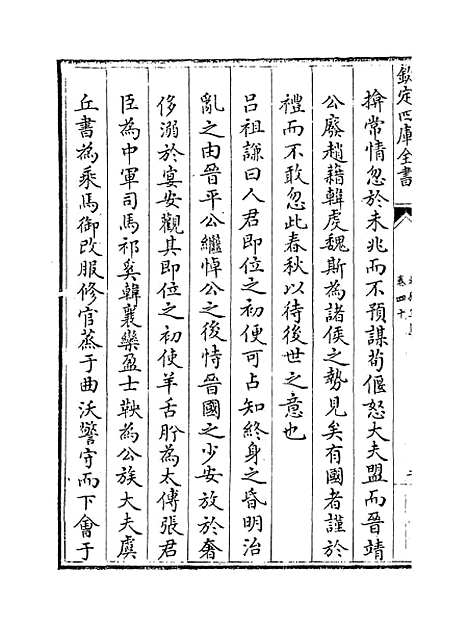 欽定四庫全書
卷四十
揜常情忽於未兆而不預謀荀偃怒大夫盟而晉靖
公廢趙籍韓虔魏斯為諸侯之勢見矣有國者謹於
禮而不敢忽此春秋以待後世之意也
呂祖謙曰人君即位之初便可占知終身之昏明治
亂之由晉平公繼悼公之後恃晉國之少安放於奢
侈溺於宴安觀其即位之初使羊舌肸為太傅張君
臣為中軍司馬祁奚韓襄欒盈士鞅為公族大夫虞
丘書為乘馬御改服修官烝于曲沃警守而下會于